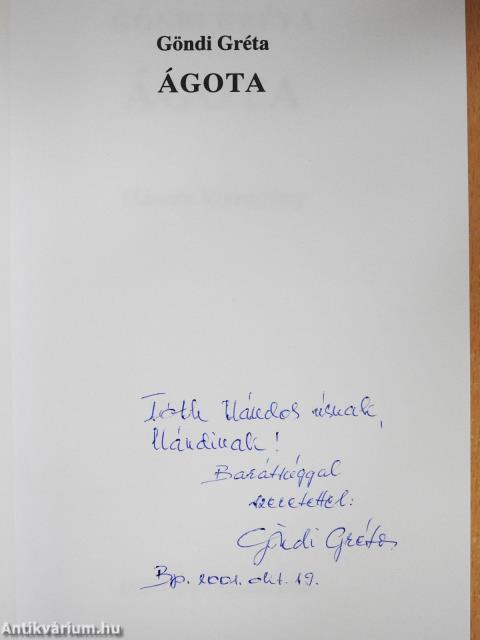 Göndi Gréta
ÁGOTA
Tóth Nándornak,
Nándinak!
Barátsággal
szeretettel:
Göndi Gréta
Bp. 2001. okt. 19.
Antikvárium.hu